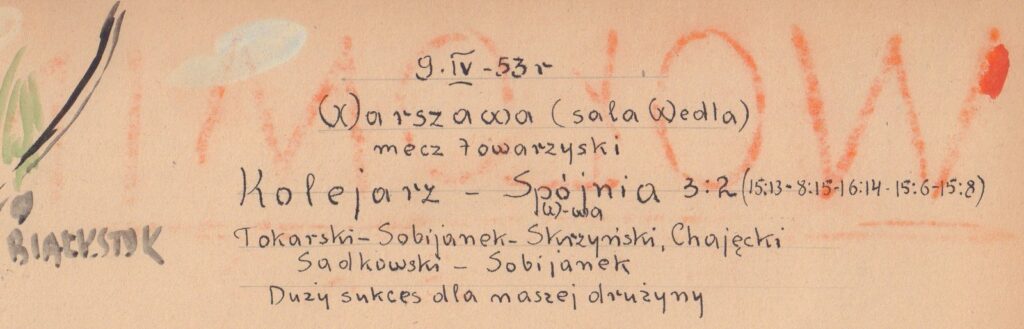 9.IV-53r
Warszawa (sala Wedla)
mecz towarzyski
Kolejarz - Spójnia 3:2 (15:13-8:15-16:14-15:6-15:8)
W-wa
Tokarski-Sobijanek-Skrzyński, Chajęcki
Sadkowski - Sobijanek
Duży sukces dla naszej drużyny
BIAŁYSTOK